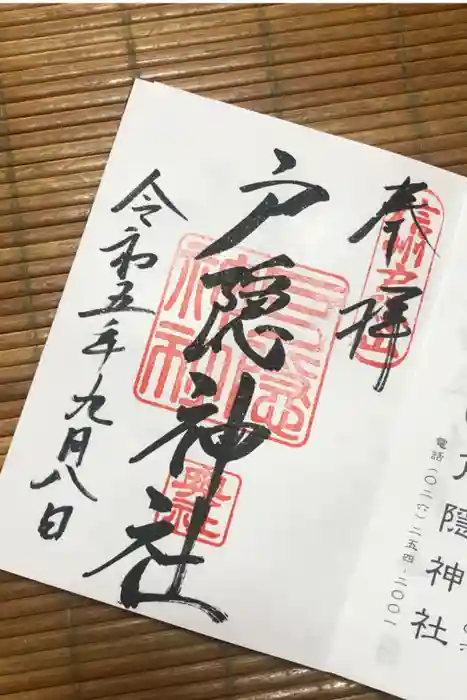 奉拝
信州戸隠山
戸隠神社
戸隠神社
奥社
令和五年九月八日
戸隠神社
電話(〇二六)二五四・二〇〇一